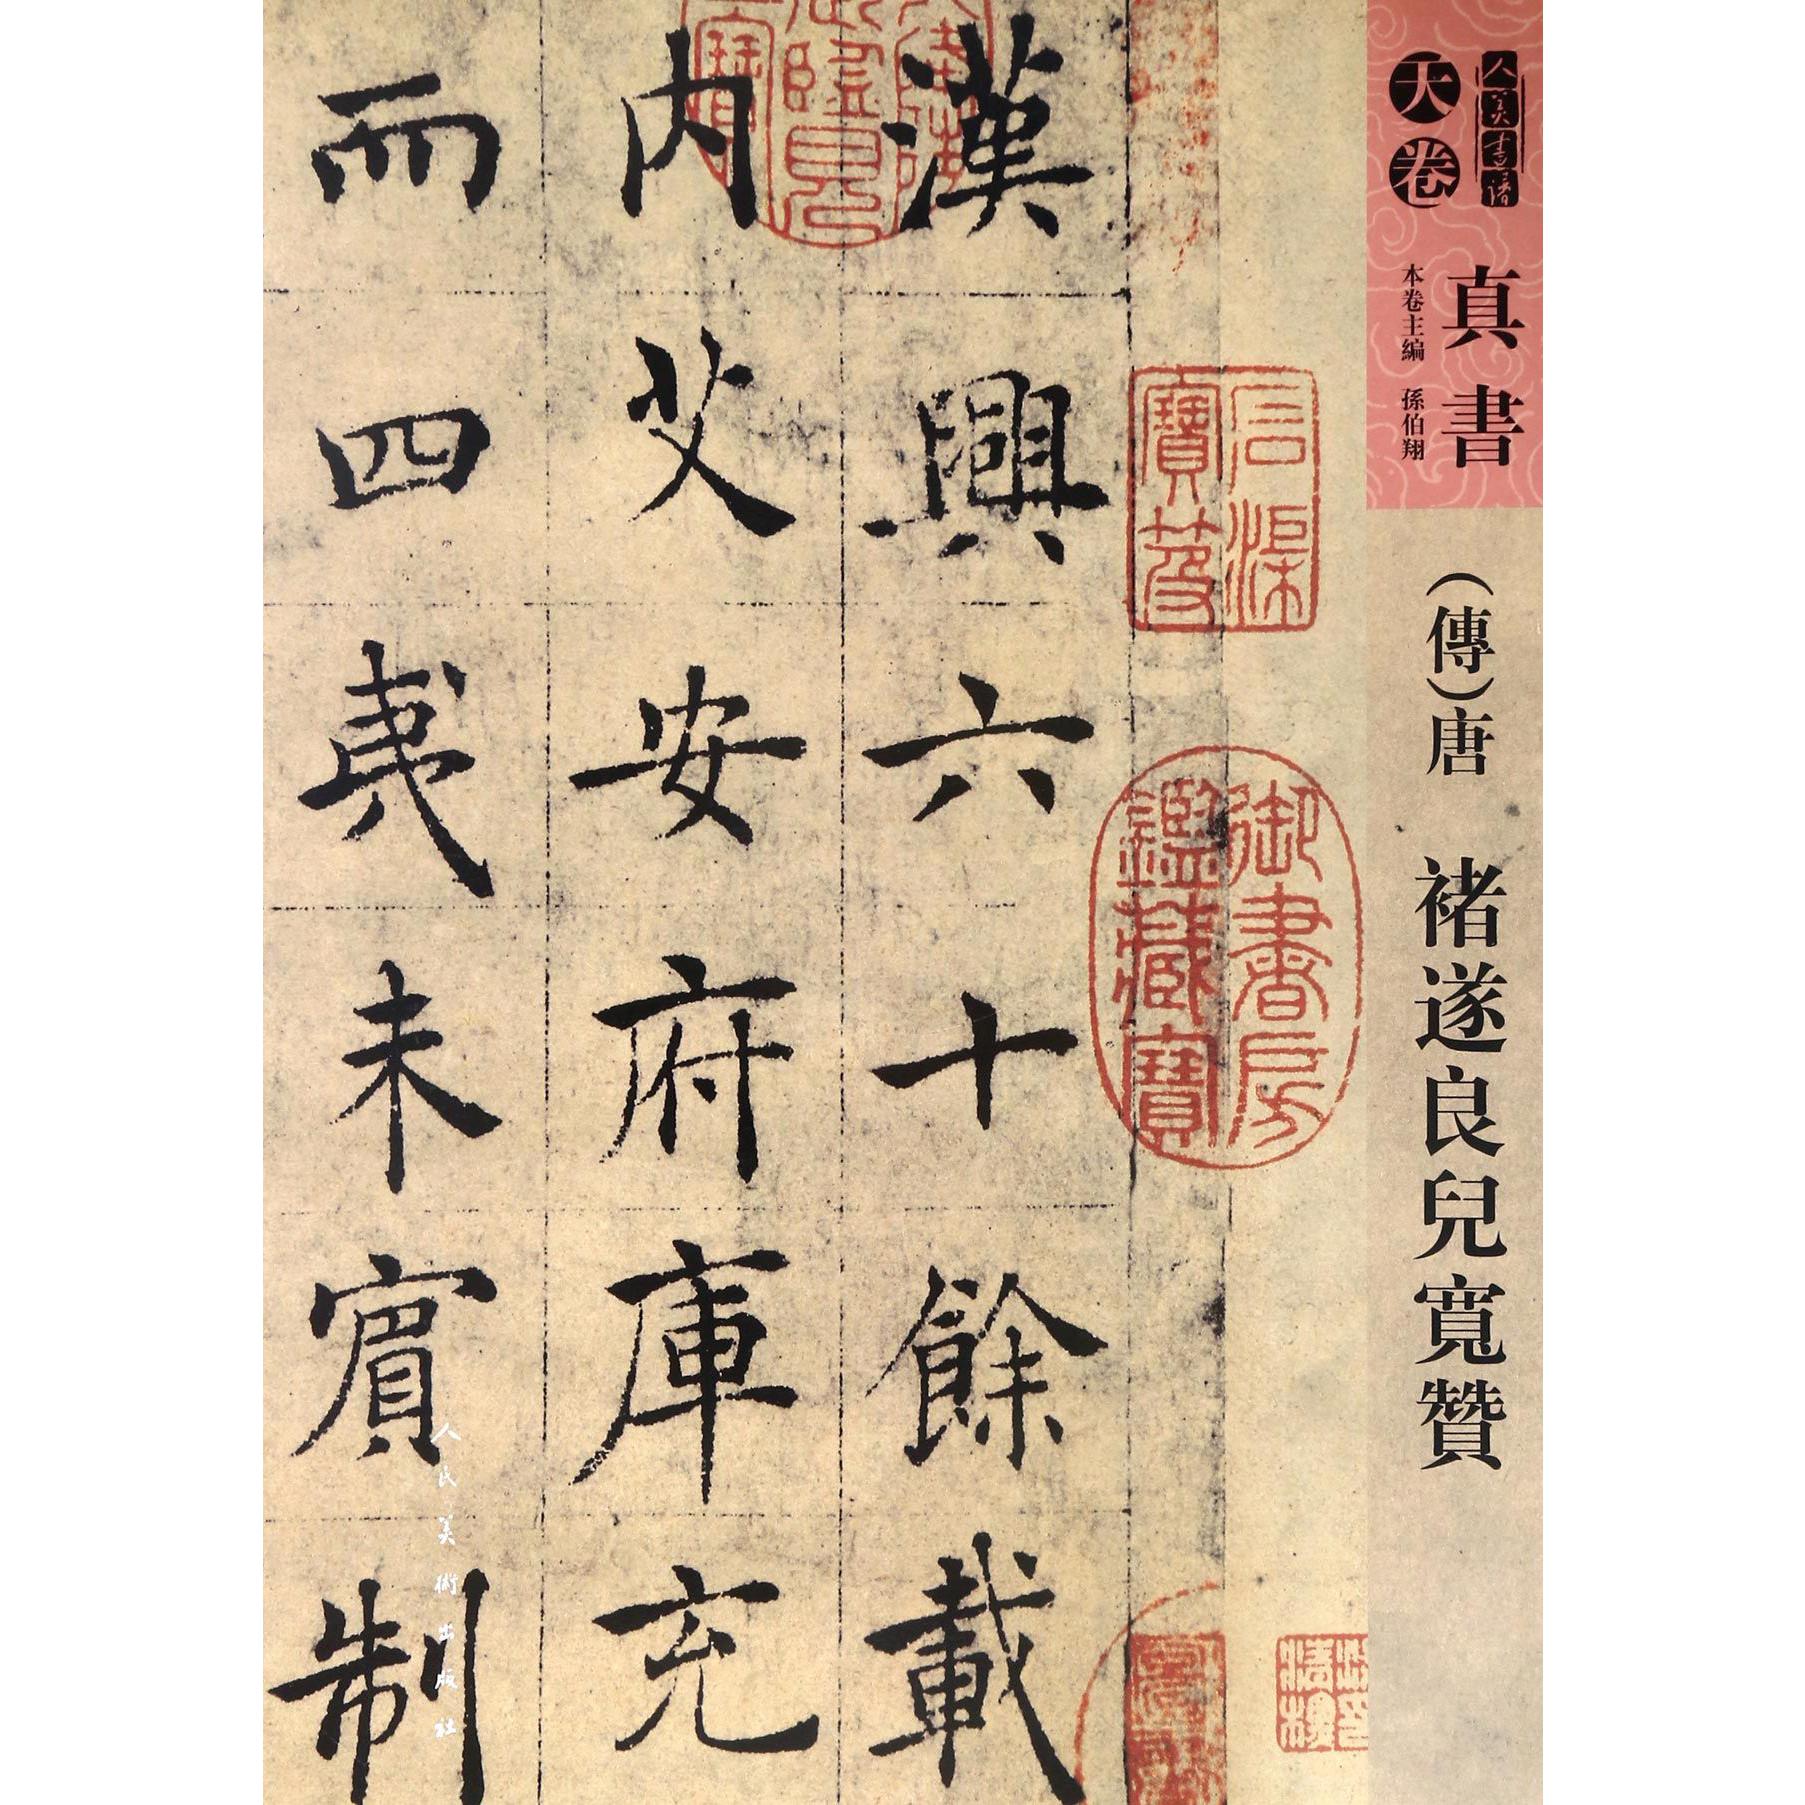 人美書譜
天卷
真書
本卷主編 孫伯翔
(傳)唐 褚遂良兒寬贊
石渠
寶笈
御書房
鑑藏寶
漢興六十餘載
内艾安府庫充
而四夷未賓制
人民美術出版社